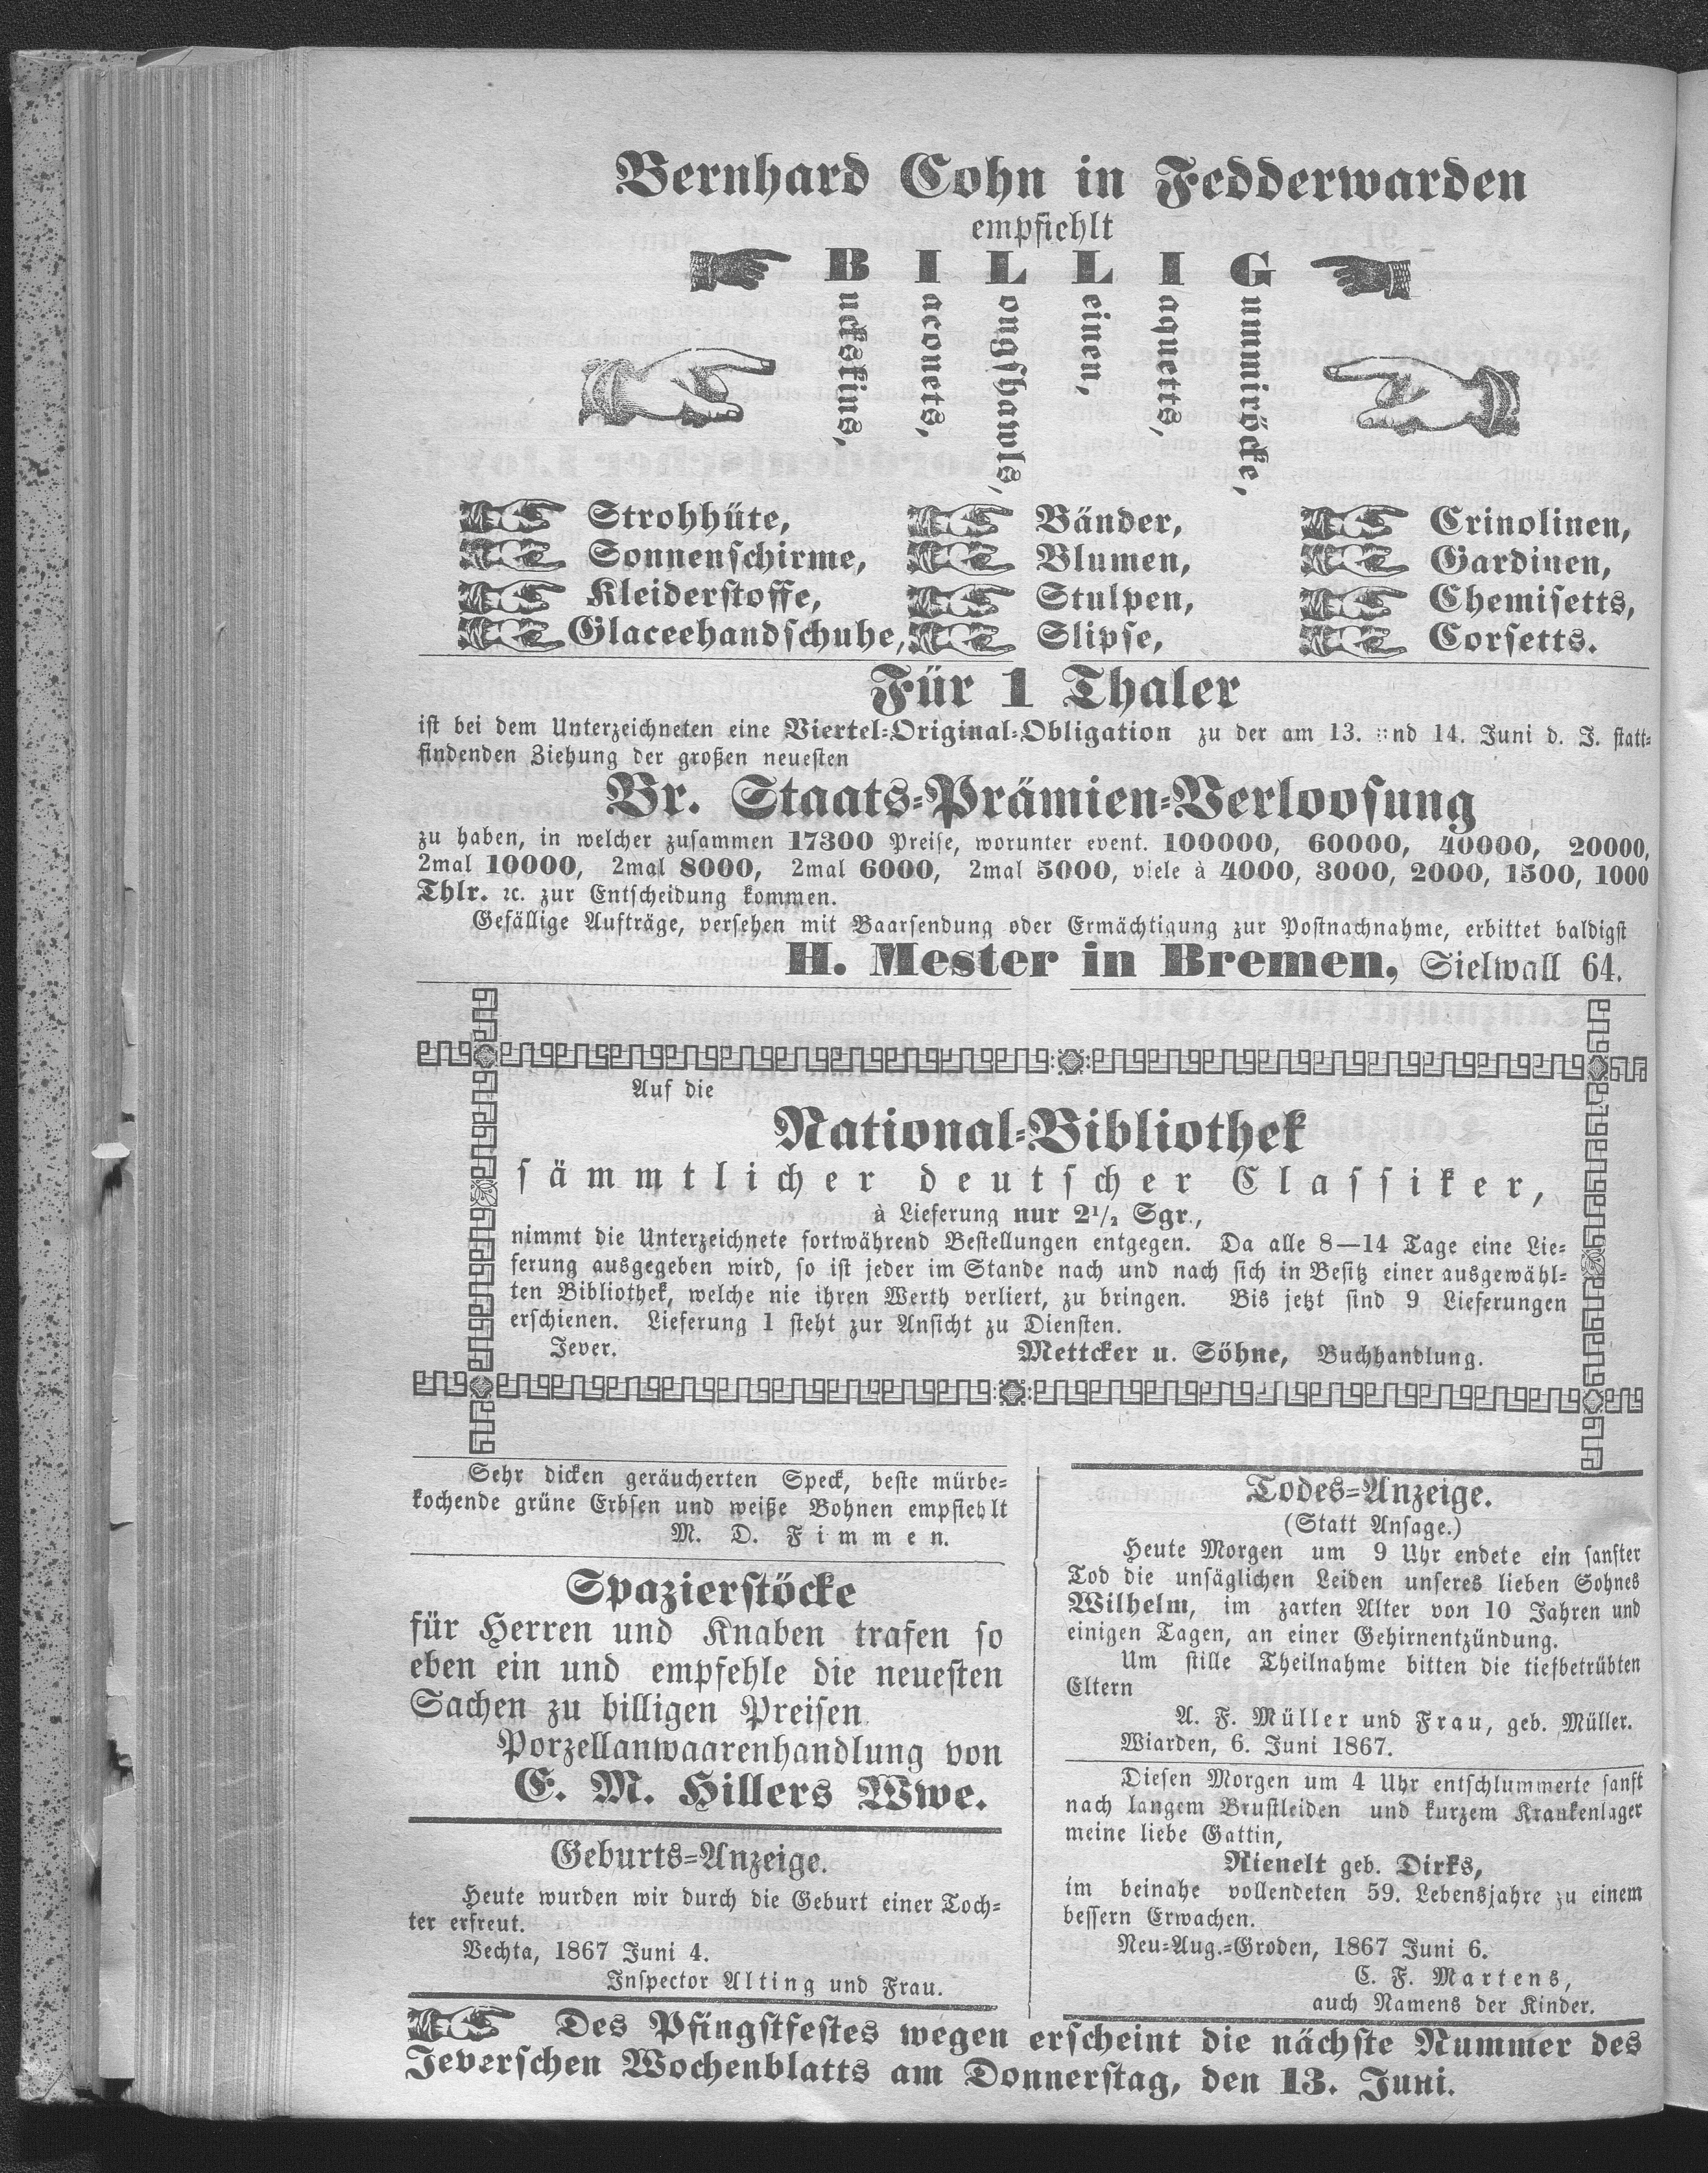 Bernhard Cohn in Fedderwarden
empfiehlt
B I L L I G
Buckskins,
Iaconetts,
Longshawls,
Leinen,
Iaquetts,
Gummiröcke,
Strohhüte,
Sonnenschirme,
Kleiderstoffe,
Glaceehandschuhe,
Bänder,
Blumen,
Stulpen,
Slipse,
Crinolinen,
Gardinen,
Chemisetts,
Corsetts.
Für 1 Thaler
ist bei dem Unterzeichneten eine Viertel-Original-Obligation zu der am 13. und 14. Juni d. J. statt-
findenden Ziehung der großen neuesten
Br. Staats-Prämien-Verloosung
zu haben, in welcher zusammen 17300 Preise, worunter event. 100000, 60000, 40000, 20000,
2mal 10000, 2mal 8000, 2mal 6000, 2mal 5000, viele à 4000, 3000, 2000, 1500, 1000
Thlr. ꝛc. zur Entscheidung kommen.
Gefällige Aufträge, versehen mit Baarsendung oder Ermächtigung zur Postnachnahme, erbittet baldigst
H. Mester in Bremen, Sielwall 64.
Auf die
National-Bibliothek
sämmtlicher deutscher Classiker,
à Lieferung nur 2½ Sgr.,
nimmt die Unterzeichnete fortwährend Bestellungen entgegen. Da alle 8—14 Tage eine Lie-
ferung ausgegeben wird, so ist jeder im Stande nach und nach sich in Besitz einer ausgewähl-
ten Bibliothek, welche nie ihren Werth verliert, zu bringen. Bis jetzt sind 9 Lieferungen
erschienen. Lieferung 1 steht zur Ansicht zu Diensten.
Jever. Mettcker u. Söhne, Buchhandlung.
Sehr dicken geräucherten Speck, beste mürbe-
kochende grüne Erbsen und weiße Bohnen empfiehlt
M. D. Fimmen.
Spazierstöcke
für Herren und Knaben trafen so
eben ein und empfehle die neuesten
Sachen zu billigen Preisen.
Porzellanwaarenhandlung von
E. M. Hillers Wwe.
Geburts-Anzeige.
Heute wurden wir durch die Geburt einer Toch-
ter erfreut.
Vechta, 1867 Juni 4.
Inspector Alting und Frau.
Todes-Anzeige.
(Statt Ansage.)
Heute Morgen um 9 Uhr endete ein sanfter
Tod die unsäglichen Leiden unseres lieben Sohnes
Wilhelm, im zarten Alter von 10 Jahren und
einigen Tagen, an einer Gehirnentzündung.
Um stille Theilnahme bitten die tiefbetrübten
Eltern
A. F. Müller und Frau, geb. Müller.
Wiarden, 6. Juni 1867.
Diesen Morgen um 4 Uhr entschlummerte sanft
nach langem Brustleiden und kurzem Krankenlager
meine liebe Gattin,
Rienelt geb. Dirks,
im beinahe vollendeten 59. Lebensjahre zu einem
bessern Erwachen.
Neu-Aug.-Groden, 1867 Juni 6.
C. F. Martens,
auch Namens der Kinder.
Des Pfingstfestes wegen erscheint die nächste Nummer des
Jeverschen Wochenblatts am Donnerstag, den 13. Juni.